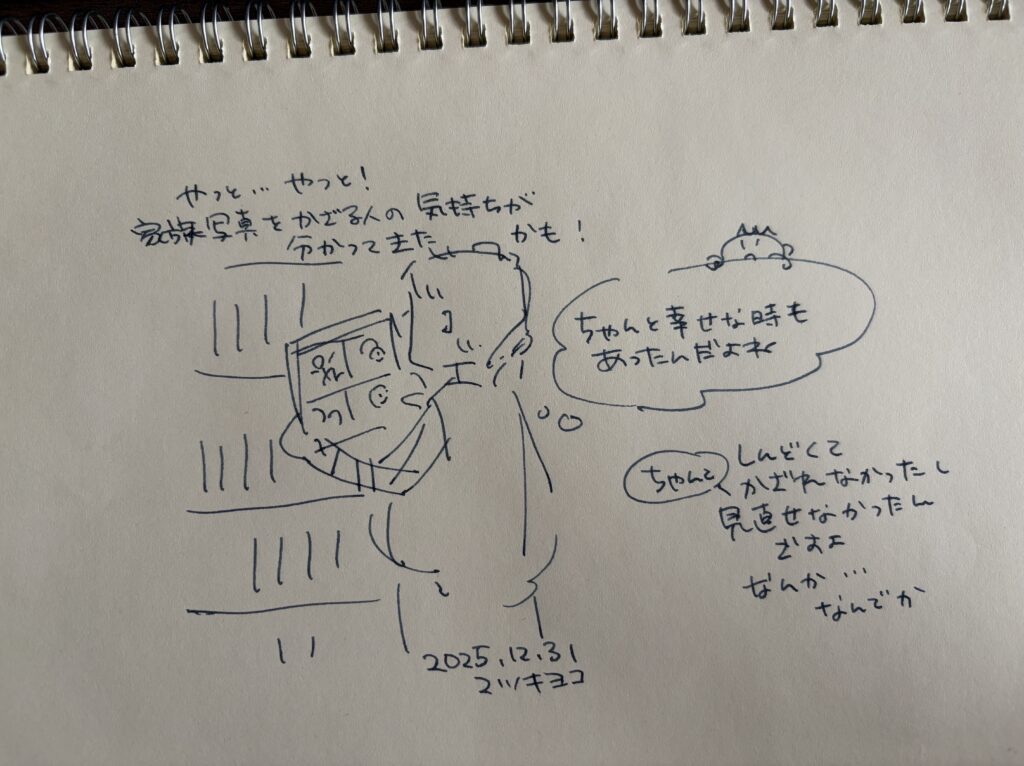 やっと… やっと!
家族写真をかざる人の気持ちが
分かってきた かも!
ちゃんと幸せな時も
あったんだよね
ちゃんと
しんどくて
かざれなかったし
見直せなかったん
ですよ
なんか…
なんでか
2025.12.31
マツキヨコ